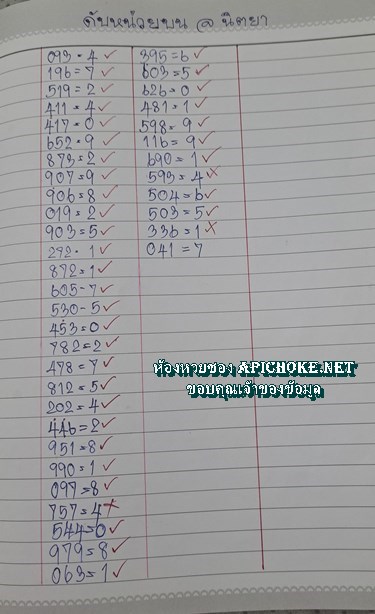 ดับหน่วยบน @ นิตยา
093 = 4 ✓
196 = 7 ✓
519 = 2 ✓
411 = 4 ✓
417 = 0 ✓
652 = 9 ✓
873 = 2 ✓
907 = 9 ✓
906 = 8 ✓
019 = 2 ✓
903 = 5 ✓
292 - 1 ✓
872 = 1 ✓
605 - 7 ✓
530 - 5 ✓
453 = 0 ✓
782 = 2 ✓
478 = 7 ✓
812 = 5 ✓
202 = 4 ✓
446 = 2 ✓
951 = 8 ✓
990 = 1 ✓
097 = 8 ✓
757 = 4 ✗
544 = 0 ✓
979 = 8 ✓
063 = 1 ✓
395 = 6 ✓
603 = 5 ✓
626 = 0 ✓
481 = 1 ✓
598 = 9 ✓
116 = 9 ✓
690 = 1 ✓
593 = 4 ✗
504 = 6 ✓
503 = 5 ✓
336 = 1 ✗
041 = 7
ห้องหวยซอง APICHOKE.NET
ขอบคุณเจ้าของข้อมูล